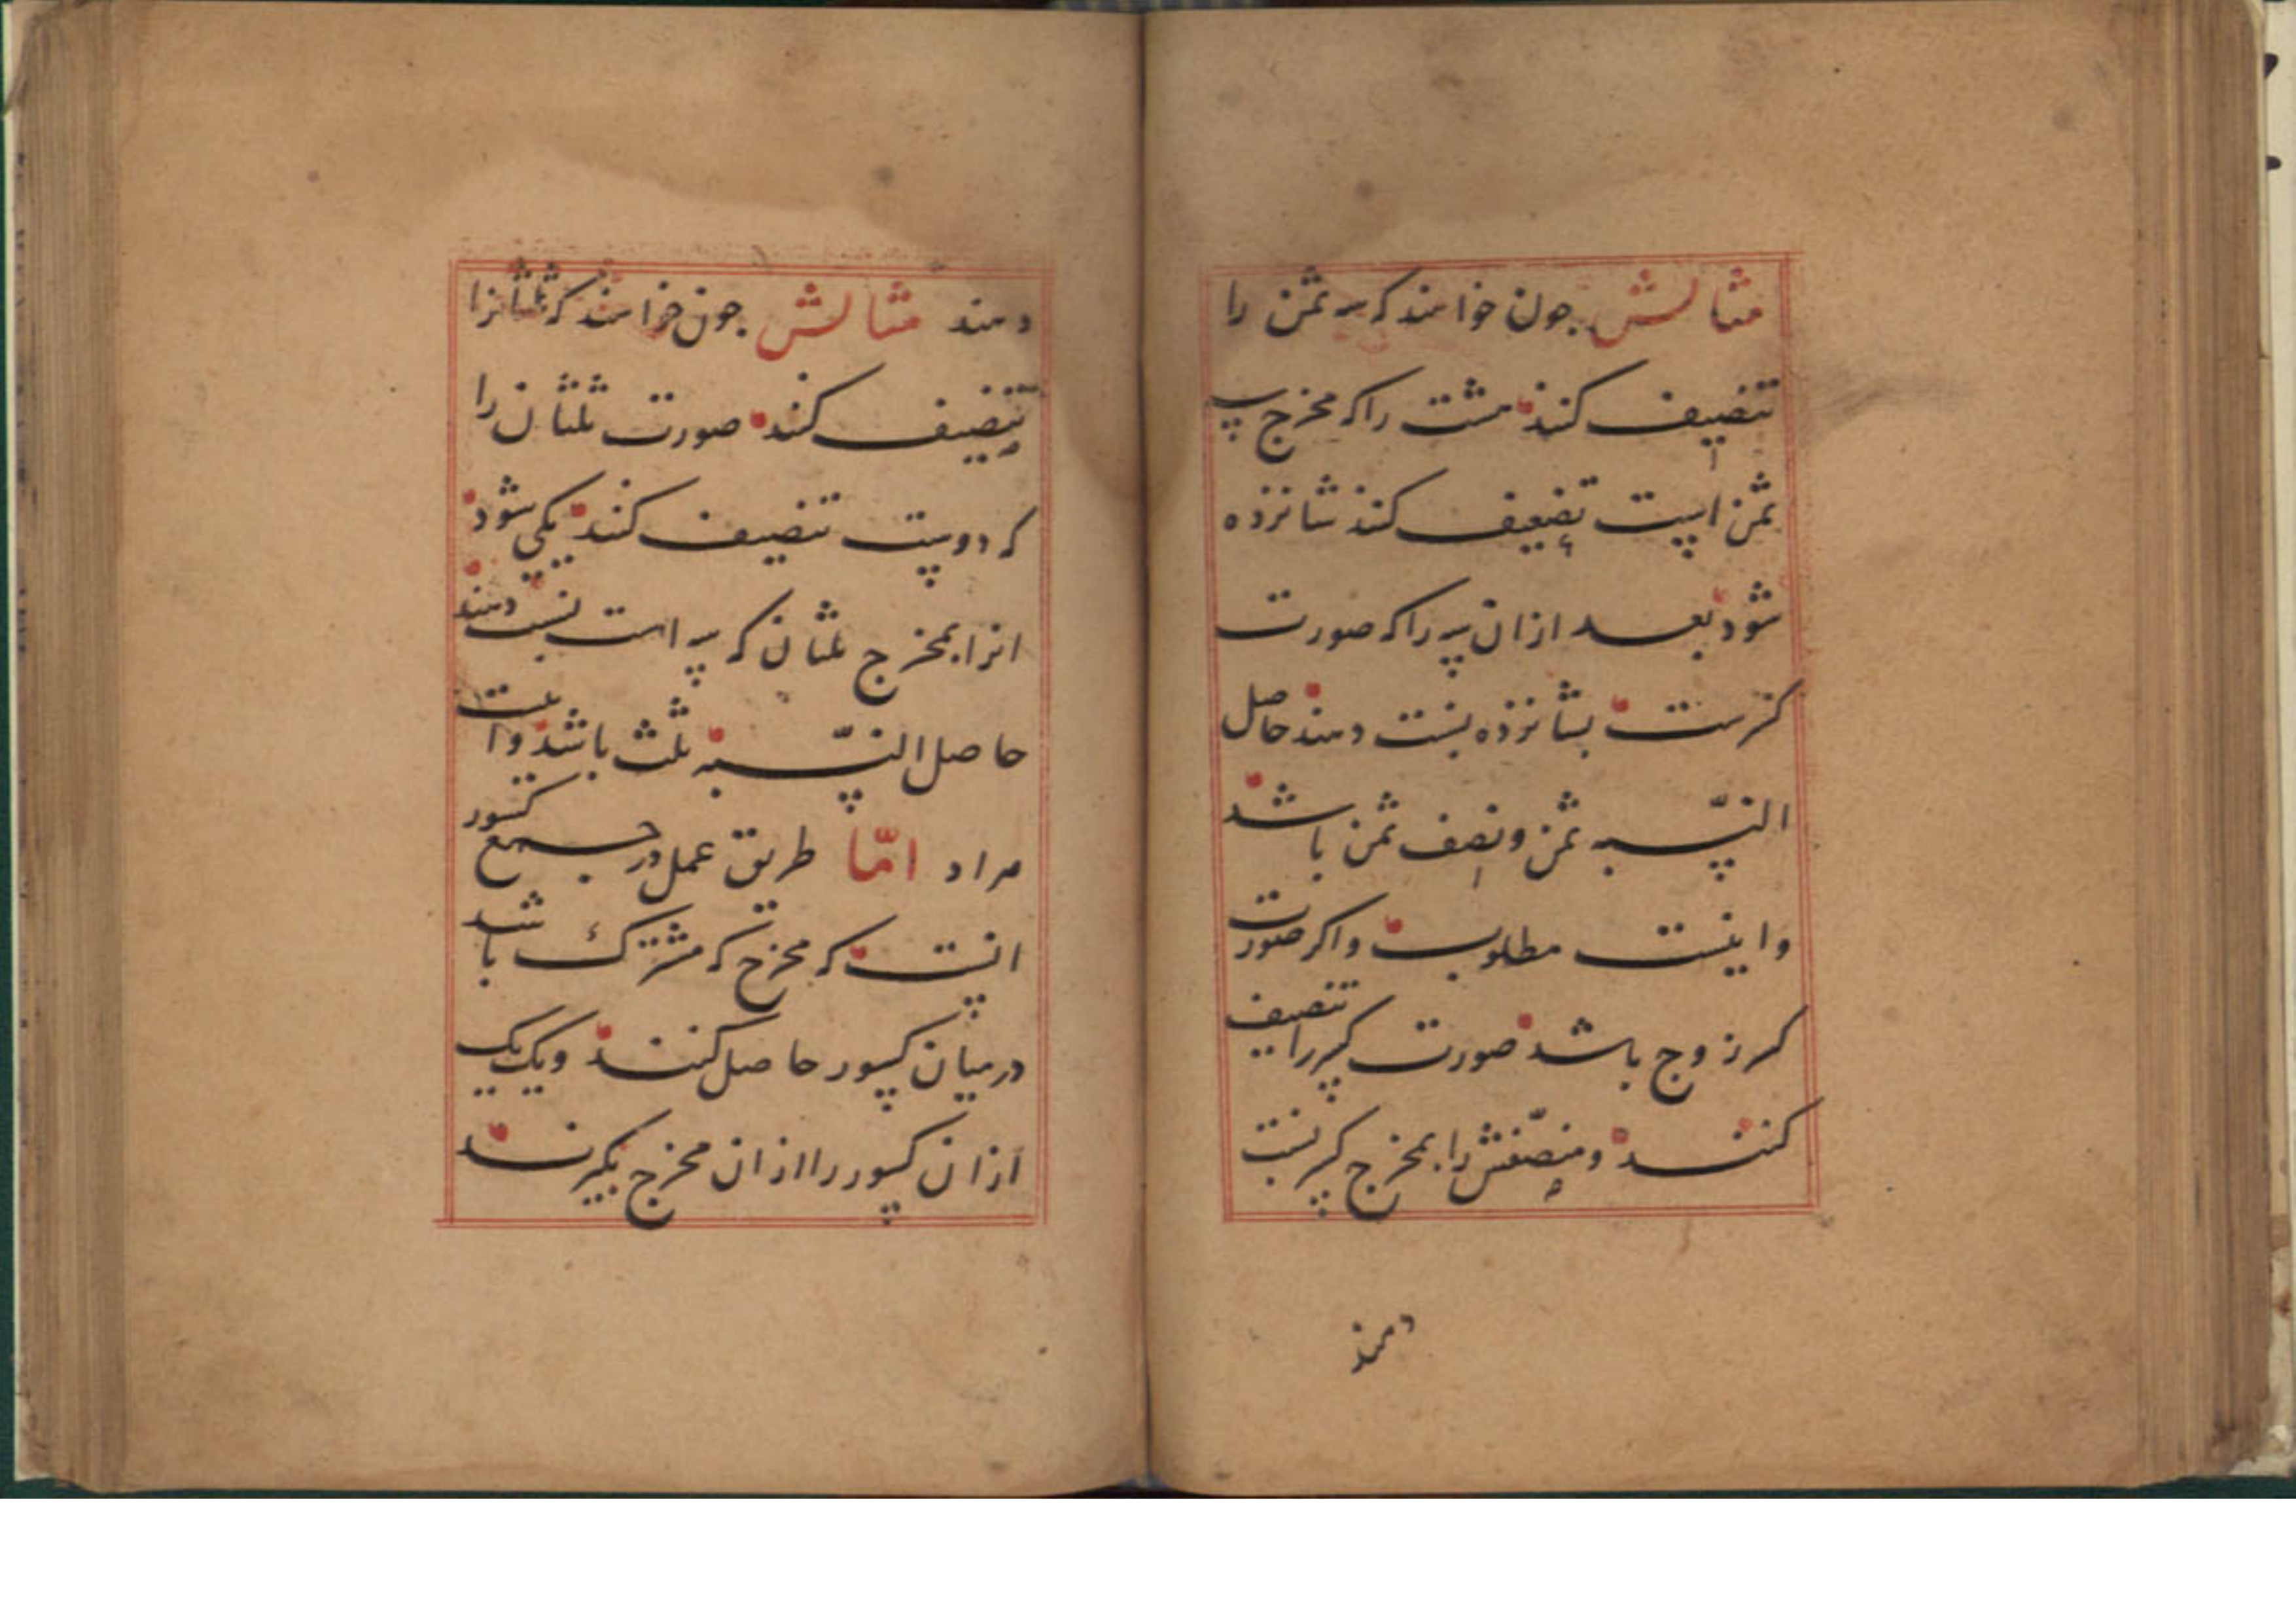 مثالش جون خواهند که سه ثمن را
تنصیف کنند هشت را که مخرج سه
ثمن است تضعیف کنند شانزده
شود بعد ازان سه را که صورت
کسرست بشانزده نسبت دهند حاصل
النسّبه ثمن و نصف ثمن باشد
و اینست مطلوب و اکر صورت
کسر زوج باشد صورت کسر را تنصیف
کنند و منصّفش را بمخرج کسر نسبت
دهند
دهند مثالش جون خواهند که ثلثانرا
تنصیف کنند صورت ثلثان را
که دوست تنصیف کنند یکی شود
انرا بمخرج ثلثان که سه است نسبت دهند
حاصل النسّبه ثلث باشد و اینست
مراد امّا طریق عمل در جمع کسور
انست که مخرج که مشترک باشد
درمیان کسور حاصل کنند و یک یک
ازان کسور را ازان مخرج بکیرند